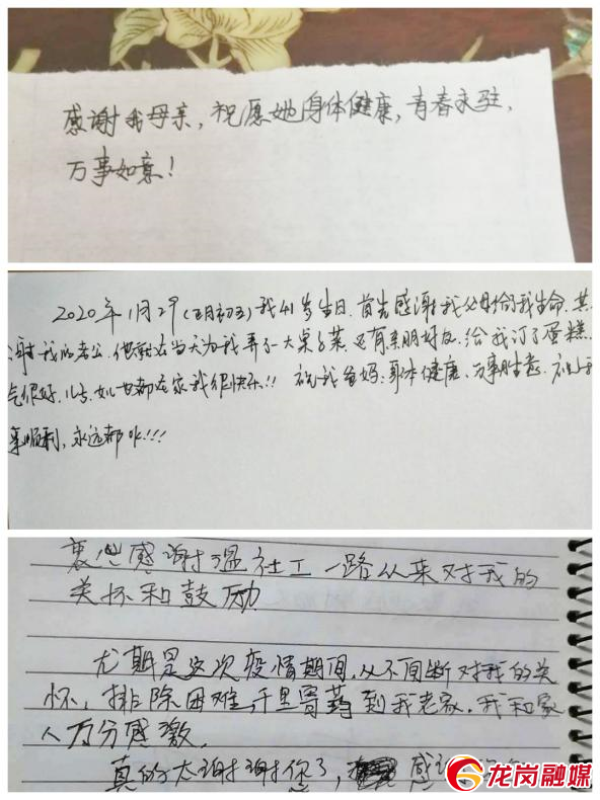 感谢我母亲，祝愿她身体健康，青春永驻，
万事如意！
2020年1月29(正月初五)我41岁生日.首先感谢我父母给我生命.其
谢我的老公.他 当天为我弄了一大桌子菜.还有亲朋好友.给我订了蛋糕.
气很好.儿子. 都在家我很快乐!! 祝我爸妈:身体健康、万事胜意.
事顺利,永远都 !!!
衷心感谢温社工一路从来对我的
关怀和鼓励
尤期是这次疫情期间,从不间断对我的关
怀，排除困难,千里寄药到我老家.我和家
人万分感激.
真的太谢谢您了， 感谢
龙岗融媒